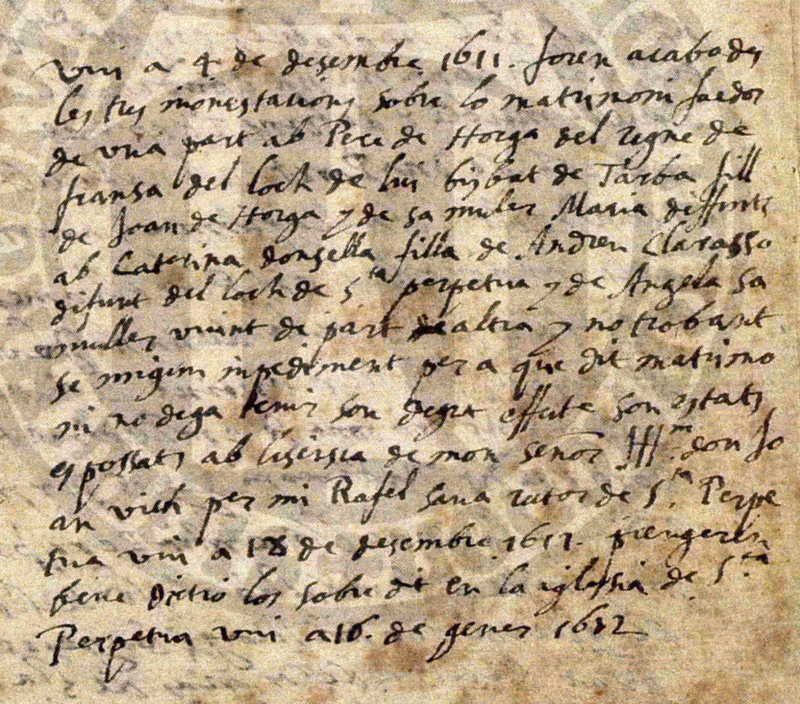 Vuy a 4 de desembre 1611. foren acabades
les tres monestacions sobre lo matrimoni faedor
de una part ab Pere de Horga del regne de
fransa del loch de lui bisbat de Tarba fill
de Joan de Horga y de sa muler Maria diffunts
ab Caterina donsella filla de Andreu Clarasso
difunt del loch de S.ta perpetua y de Angela sa
muller vivint de part de altra y no trobant
se nigun inpediment per a que dit matrimo
ni no dega tenir son degut effecte son estats
espossats ab lisensia de mon señor Ill.m don Jo
an vich per mi Rafel sava retor de S.ta Perpe
tua vuy a 18 de desembre 1611. prengeren
bene dictio los sobre dit en la iglesia de S.ta
Perpetua vuy a 16. de gener 1612